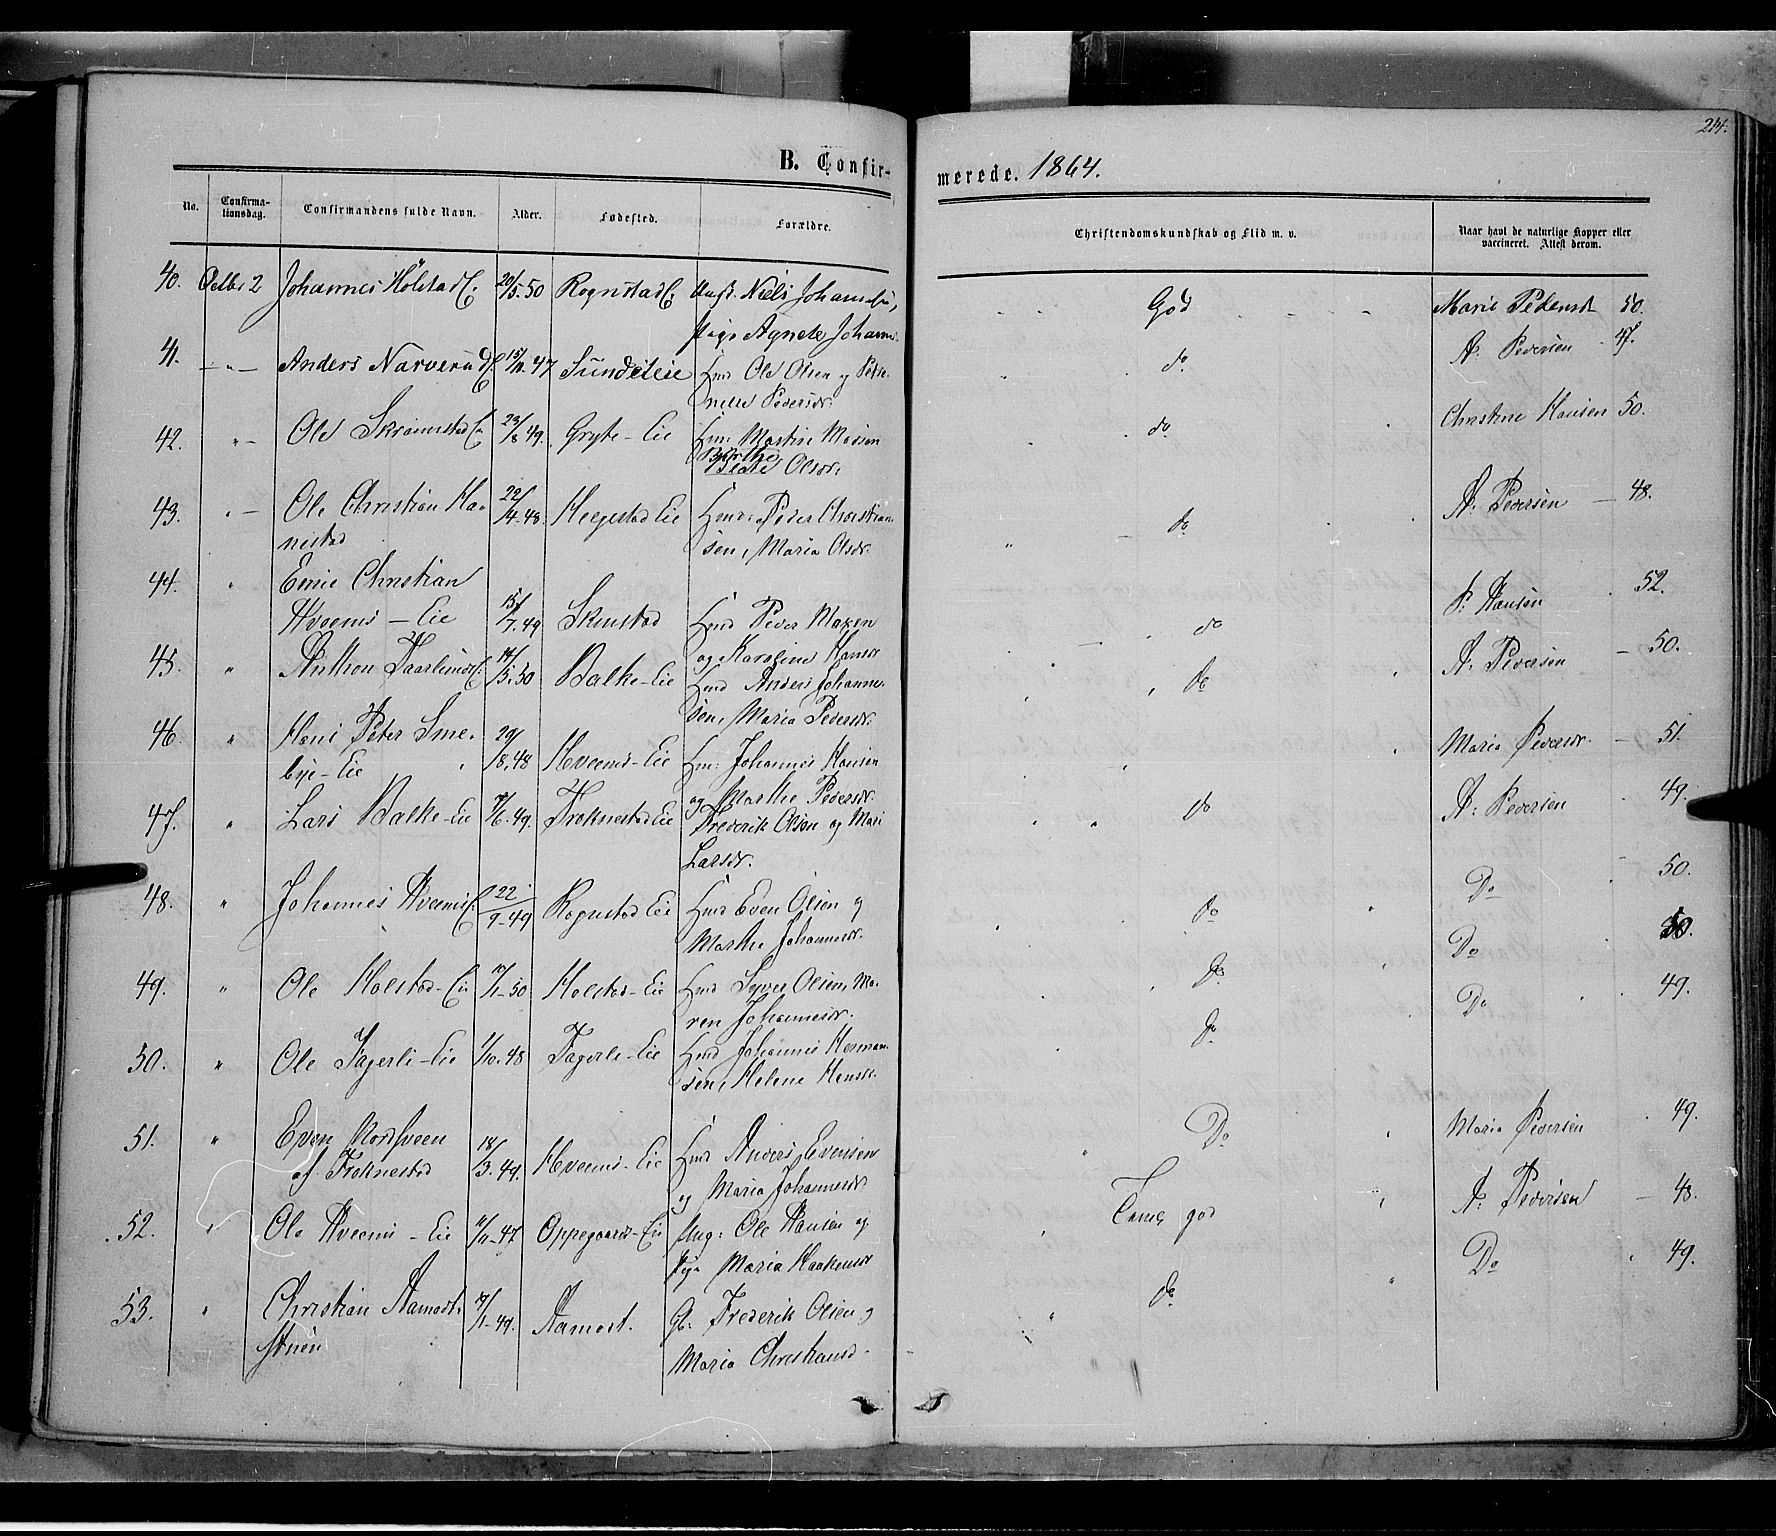 214.
B. Confir-
merede. 1864.
No. Confirma-tionsdag. Confirmandens fulde Navn. Alder. Fødested. Forældre. Christendomskundskab og Flid m. v. Naar havt de naturlige Kopper eller vaccineret. Attest derom.
40. Octbr 2 Johannes Holstad E. 20/5.50 Rognstad E. Niels Johansen,
Pige Agnete Johanns.
God Marie Pedersd 50.
41. — " — Anders Narverud E. 15/11.47 Sundeteie Hmd Ole Olsen og Peter-
nelle Pedersdr.
do A. Pedersen 47.
42. " — Ole Skramstad E. 23/8 49. Gryte-Eie Hmd Martin Madsen
Birthe
Beate Olsdr.
do Christine Hansen 50.
43. " — Ole Christian Ha-
nestad
22/4-48. Hegestad Eie Hmd: Peder Christian-
sen, Maria Olsdr.
do A. Pedersen — 48.
44. " Christian
Hveems — Eie
15/7.49 Skustad Hmd Peder
og Karoline Hansd
do P. Hansen 52.
45. " Anthon Kaarlund E. 14/5.50 Balke-Eie Hmd Anders Johanne-
sen, Maria Pedersdr.
do A. Pedersen — 50.
46. " Hans Peter Sme-
bye-Eie
29/8.48 Hveems-Eie Hm: Johannes Hansen
og Marthe Pedersdr.
Maria Pedersdr. — 51.
47. " Lars Balke-Eie 7/6.49. Froknestad Eie Frederik Olsen og Mari
Larsdr.
do A. Pedersen 49.
48. " Johannes Hveems E. 22/9-49 Rognstad Eie Hmd Even Olsen og
Marthe Johannesdr.
do Do 50.
49. " Ole Holstad-Eie 10/1-50 Holstad-Eie Hmd Syver Olsen, Ma-
ren Johannesdr.
do Do 50.
50. " Ole Fagerli-Eie 1/10.48 Fagerli-Eie Hmd Johannes Herman-
sen, Helene Hansdr.
do Do 49.
51. " Even Nordsveen
af Froknestad
18/3.49. Hveems-Eie Hmd Anders Evensen
og Maria Johannesdr.
Do Maria Pedersen 49.
52. " Ole Hveems-Eie 11/11-47 Oppegaards-Eie Ung: Ole Hansen og
Pige Maria Haakensdr
Temg god A. Pedersen — 48.
53. " Christian Aamodt-
stuen
19/1-49. Aamodt. Gb: Frederik Olsen og
Maria Christiansd.
do Do 49.